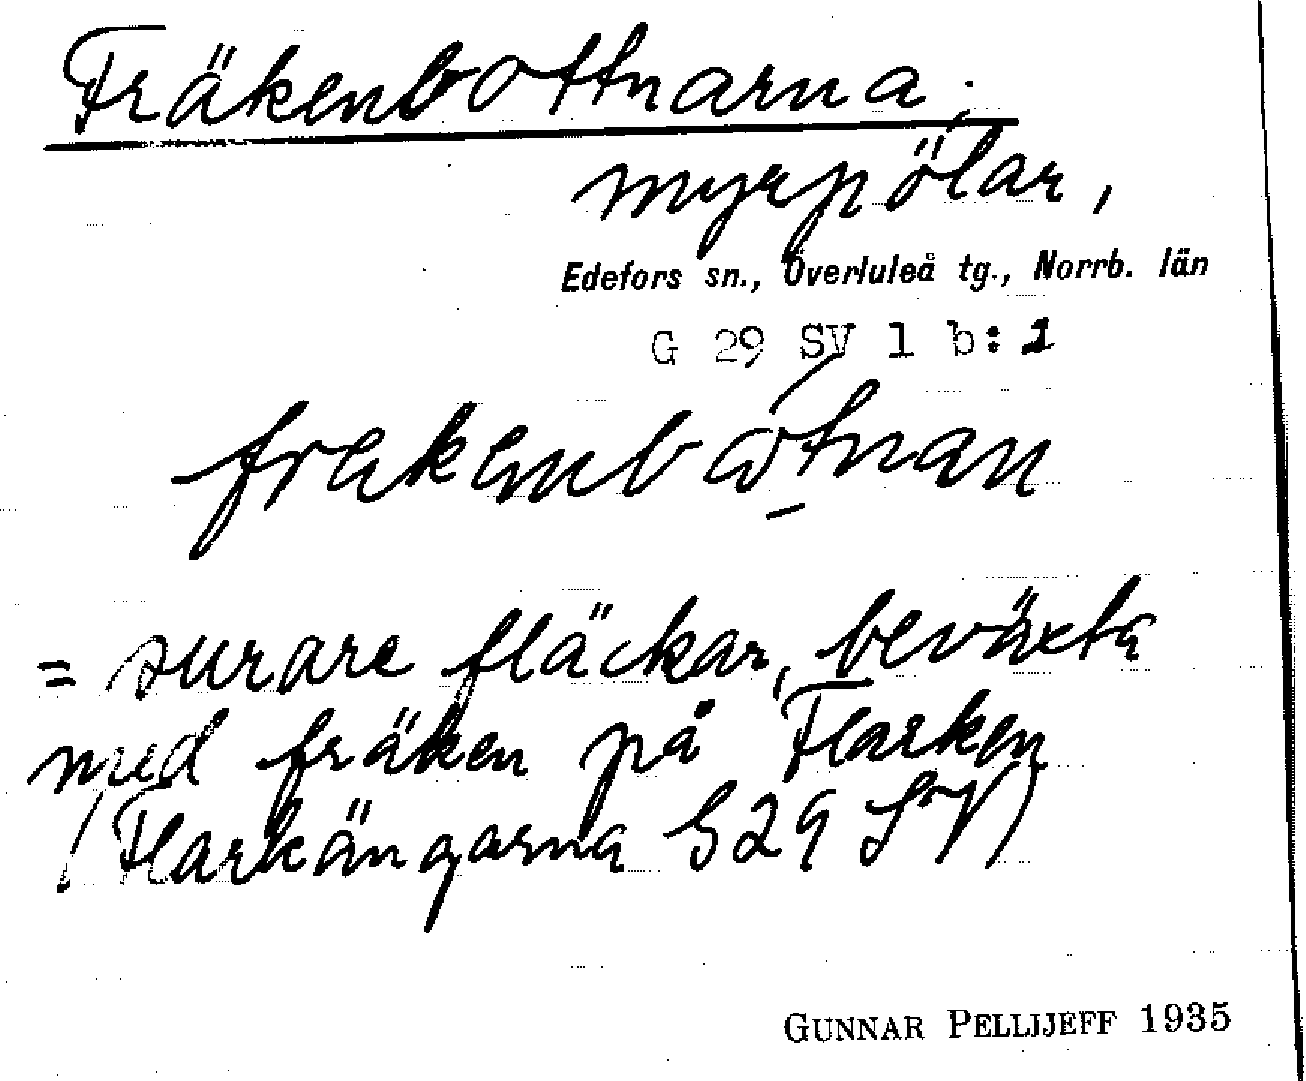 Fräkenbottnarna,
myrpölar,
Edefors sn., Överluleå tg., Norrb. län
G 29 SV 1 b:1
= surare fläckar, beväxta
med fräken på Flarken
(Flarkängarna G 29 SV)
GUNNAR PELLIJEFF 1935